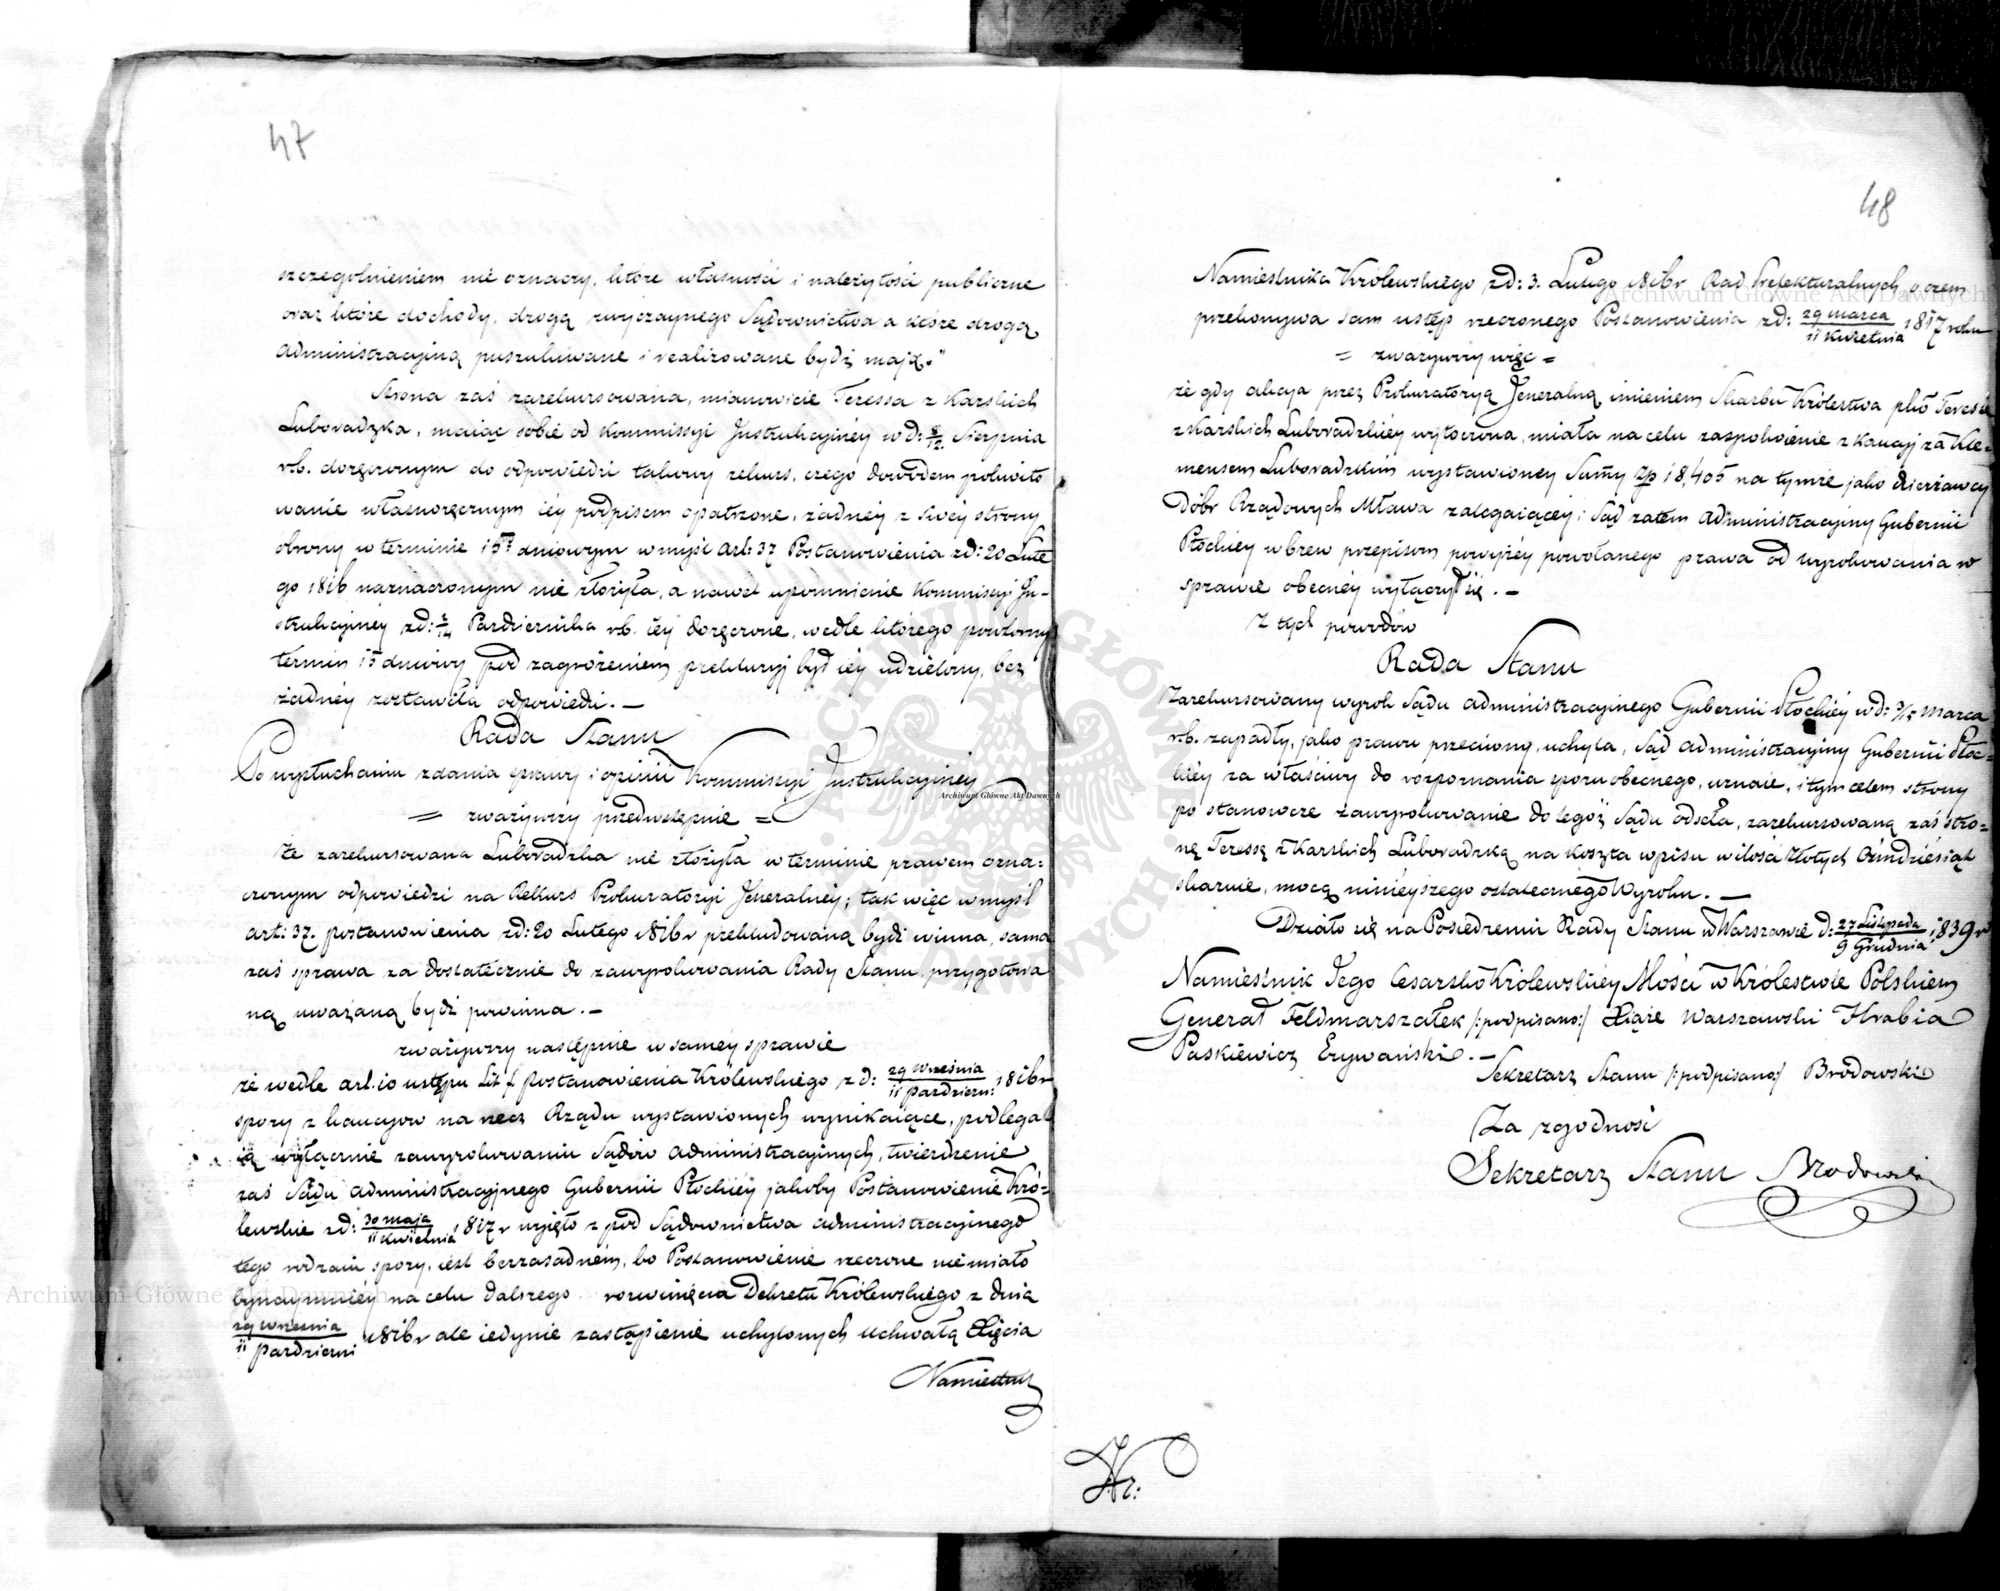 47
szczegolnieniem nie oznaczy, które własności i należytości publiczne
oraz które dochody, drogą zwyczaynego Sądownictwa a które drogą
administracyjną poszukiwane i realizowane bydź mają."
Strona zaś zarekursowana, mianowicie Teressa z Karskich
Luboradzka, maiąc sobie od Kommissyi Instrukcyjnéy w d: Sierpnia
r.b. doręczonym do odpowiedzi takowy rekurs, czego dowodem pokwito
wanie własnoręcznym iéy podpisem opatrzone, żadnéy z swéy strony
obrony w terminie 15 dniowym w myśl art: 37 Postanowienia zd: 20 Lute
go 1816 naznaczonym nie złożyła, a nawet upomnienie Kommissyi In-
strukcyjnéy zd: Pazdziernika r.b. iéy doręczone, wedle którego powtórny
termin 15 dniowy pod zagrożeniem prekluzyi był iéy udzielony, bez
żadnéy zostawiła odpowiedzi. —
Rada Stanu
Po wysłuchaniu zdania sprawy i opinii Kommissyi Instrukcyjnéy
= zważywszy przedwstępnie =
że zarekursowana Luboradzka nie złożyła w terminie prawem ozna=
czonym odpowiedzi na Rekurs Prokuratoryi Jeneralnéy; tak więc w myśl
art: 37. postanowienia zd: 20 Lutego 1816 r prekludowaną bydź winna, sama
zaś sprawa za dostatecznie do zawyrokowania Rady Stanu przygotowa
ną uważaną bydź powinna. —
zważywszy następnie w samey sprawie
że wedle art. 10 ustępu Lit f postanowienia Królewskiego z d: 29 Września / 11 Pazdziern: 1816 r
spory z kaucyow na rzecz Rządu wystawionych wynikaiące, podlega
ią wyłącznie zawyrokowaniu Sądów administracyjnych, twierdzenie
zaś Sądu administracyjnego Gubernii Płockiéy jakoby Postanowienie Kró=
lewskie zd: 30 maja / 11 Kwietnia 1817 r wyjęło z pod Sądownictwa administracyjnego
tego rodzaiu spory, iest bezzasadném, bo Postanowienie rzeczone nie miało
bynaymniéy na celu dalszego rozwinięcia Dekretu Królewskiego z dnia
29 Września / 11 Pazdzierni 1816 r ale iedynie zastąpienie uchylonych uchwałą Xięcia
Namiestnik
48
Namiestnika Królewskiego zd: 3. Lutego 1816 r Rad Prefekturalnych, o czem
przekonywa sam ustęp rzeczonego Postanowienia zd: 29 marca / 11 Kwietnia 1817 roku
= zważywszy więc =
że gdy akcyja przez Prokuratoryą Jeneralną imieniem Skarbu Królestwa pko Teressie
z Karskich Luboradzkiéy wytoczona, miała na celu zaspokoienie z kaucyj za Kle=
mensem Luboradzkim wystawionéy Summy zp 18,405 na tymże jako dzierżawcy
Dóbr Rządowych Mława zalegaiącéy; Sąd zatem Administracyjny Gubernii
Płockiéy wbrew przepisom powyżéy powołanego prawa od wyrokowania w
sprawie obecnéy wyłączył się. —
Z tych powodów
Rada Stanu
Zarekursowany wyrok Sądu administracyjnego Gubernii Płockiéy w d: 3/15 Marca
r.b. zapadły, jako prawu przeciwny, uchyla, Sąd Administracyjny Gubernii Płoc=
kiéy za właściwy do rozpoznania sporu obecnego, uznaie, i tym celem strony
po stanowcze zawyrokowanie do tegoż Sądu odseła, zarekursowaną zaś stro=
nę Teressę z Karskich Luboradzką na koszta wpisu w ilości Złotych Ośmdziesiąt
skazuie, mocą ninieyszego ostatecznego Wyroku. —
Działo się na Posiedzeniu Rady Stanu w Warszawie d: 27 Listopada / 9 Grudnia 1839 r
Namiestnik Jego Cesarsko Królewskiéy Mości w Królestwie Polskiem
Generał Feldmarszałek /:podpisano:/ Xiąże Warszawski Hrabia
Paskiewicz Erywański. —
Sekretarz Stanu /:podpisano:/ Brodowski
Za zgodność
Sekretarz Stanu Brodowski
Archiwum Główne Akt Dawnych
Archiwum Główne Akt Dawnych
Archiwum Główne Akt Dawnych